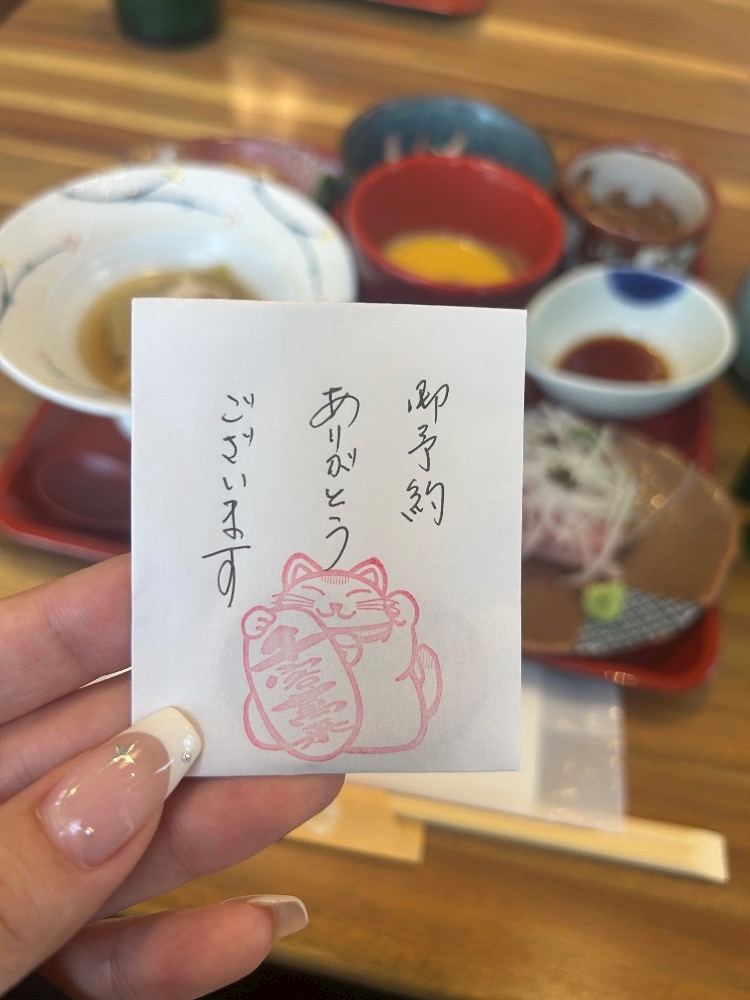 御予約
ありがとう
ございます